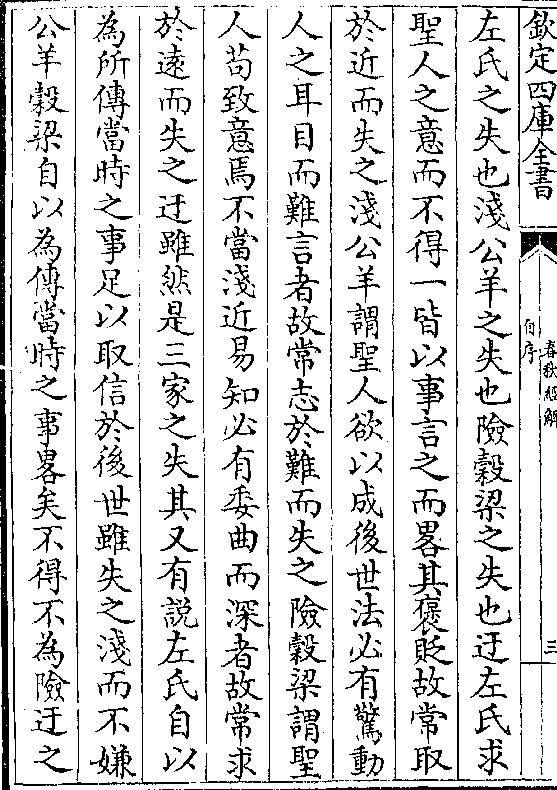 欽定四庫全書
春秋經解
自序
三
左氏之失也淺公羊之失也險穀梁之失也迂左氏求
聖人之意而不得一皆以事言之而畧其褒貶故常取
於近而失之淺公羊謂聖人欲以成後世法必有驚動
人之耳目而難言者故常志於難而失之險穀梁謂聖
人苟致意焉不當淺近易知必有委曲而深者故常求
於遠而失之迂雖然是三家之失其又有説左氏自以
為所傳當時之事足以取信於後世雖失之淺而不嫌
公羊穀梁自以為傳當時之事畧矣不得不為險迂之